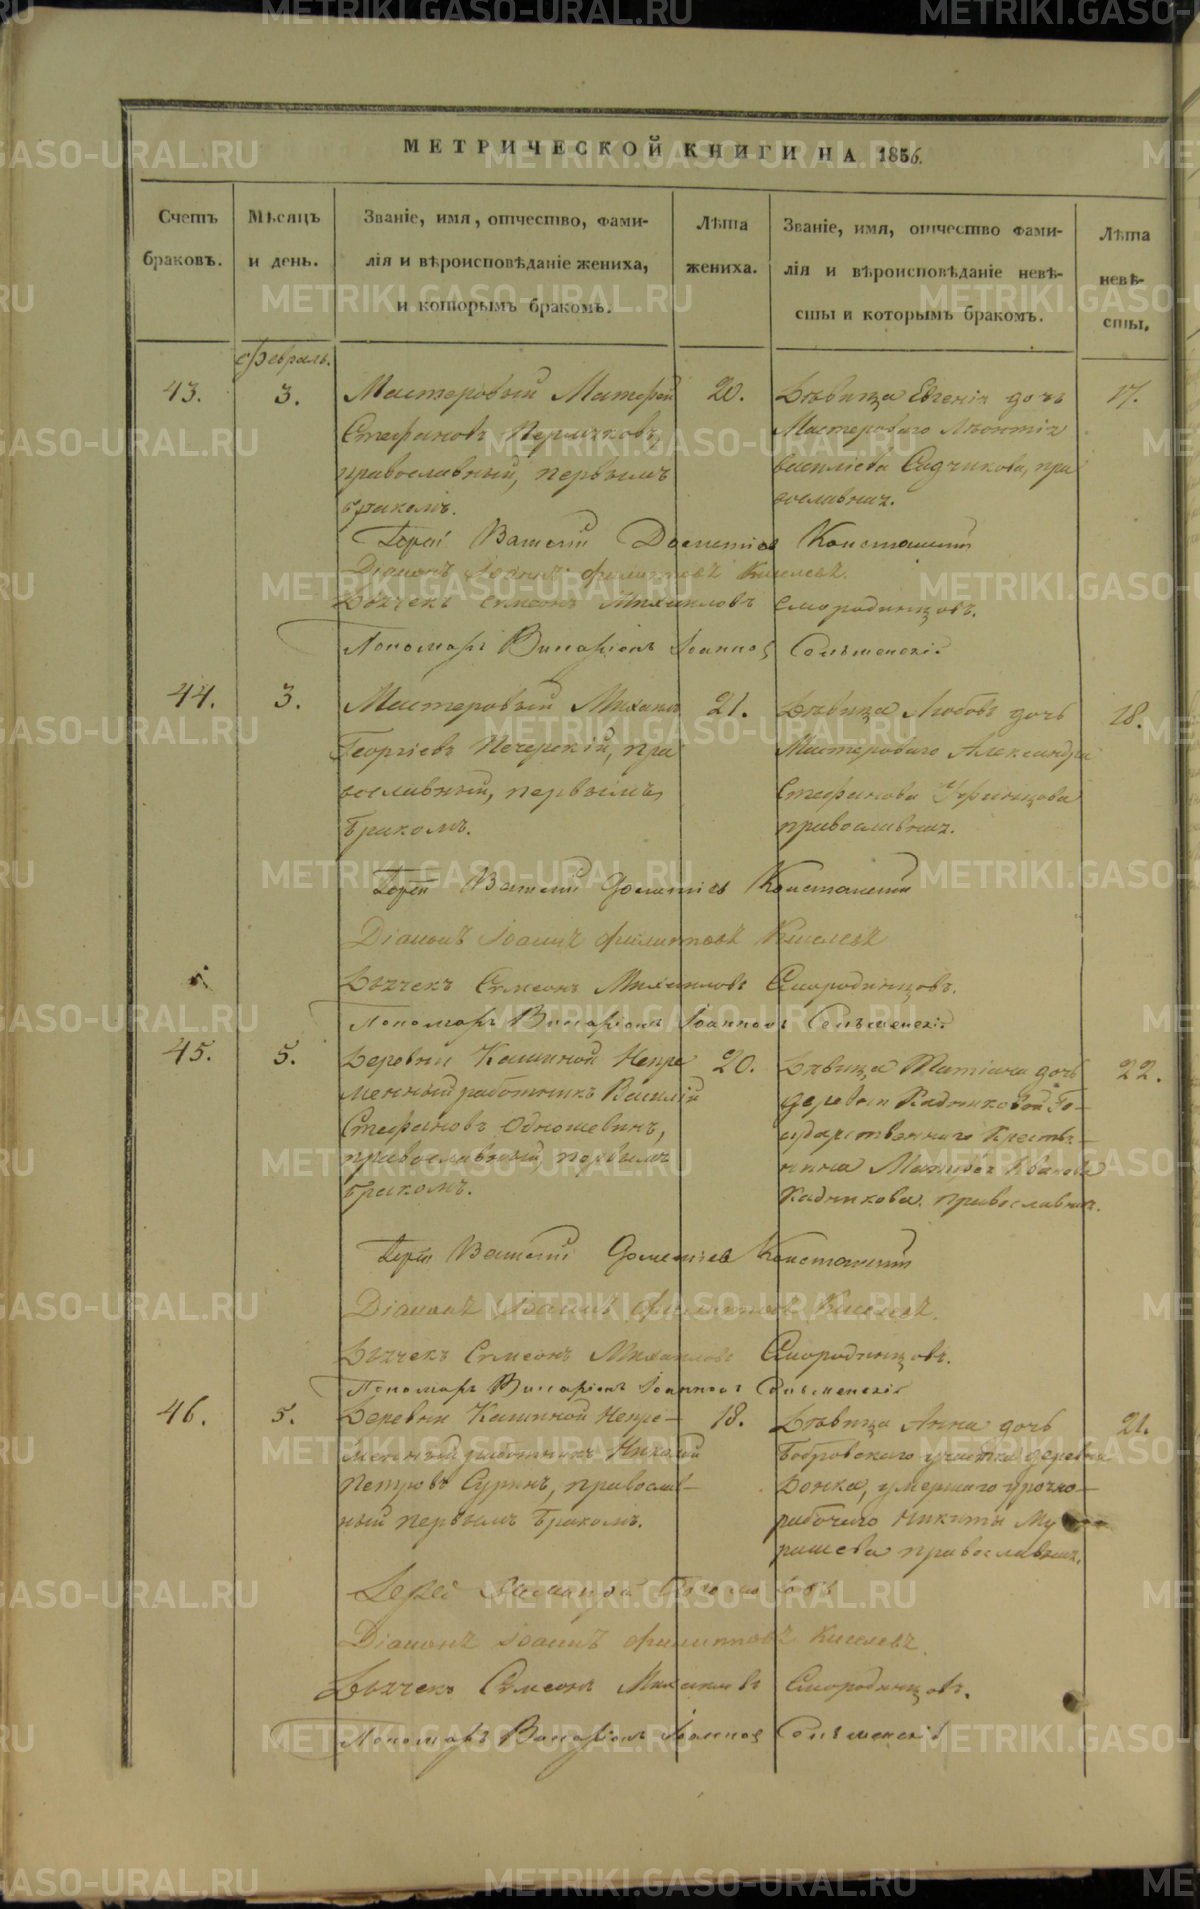 МЕТРИЧЕСКОЙ КНИГИ НА 1856.
Счетъ браковъ.
Мѣсяцъ и день.
Званіе, имя, отчество, фами-
лія и вѣроисповѣданіе жениха,
и которымъ бракомъ.
Лѣта
жениха.
Званіе, имя, отчество фами-
лія и вѣроисповѣданіе невѣ-
сты и которымъ бракомъ.
Лѣта
невѣ-
сты.
Февраль.
43.
3.
Мастеровый Матфей
Стефановъ Пермяковъ,
православный, первымъ
бракомъ.
20.
Дѣвица Евгенія дочь
Мастероваго Леонтія
Василіева Садчикова, пра
вославная.
17.
Іерей Василій Дометіев Константин
Діаконъ Іоаннъ Филипповъ Киселевъ.
Дьячекъ Сѵмеонъ Михаиловъ Смородинцовъ.
Пономарь Виссаріонъ Іоаннов
44.
3.
Мастеровый Михаилъ
Георгіевъ Печерскій, пра
вославный, первымъ
бракомъ.
21.
Дѣвица Любовь дочь
Мастероваго Александра
Стефанова Уфинцова
православная.
18.
Іерей Василій Дометіев Константин
Діаконъ Іоаннъ Филипповъ Киселевъ
Дьячекъ Сѵмеонъ Михаиловъ Смородинцовъ.
Пономарь Виссаріонъ Іоаннов
45.
5.
Деревни Кашиной Непре
менный работникъ Василій
Стефановъ Одношевинъ,
православный, первымъ
бракомъ.
20.
Дѣвица Татіана дочь
деревни Кадниковой Го-
сударственнаго Крестья-
нина Матфея Иванова
Кадникова. православная.
22.
Іерей Василій Дометіев Константин
Діаконъ Іоаннъ Филиппов Киселевъ.
Дьячекъ Сѵмеонъ Михаиловъ Смородинцовъ.
Пономарь Виссаріонъ Іоаннов
46.
5.
Деревни Кашиной Непре-
менный работникъ Николай
Петровъ Суринъ, православ-
ный первымъ бракомъ.
18.
Дѣвица Анна дочь
Бобровскаго участка деревни
умершаго урочно-
рабочаго Никиты Му
рашева православная.
21.
Іерей
Діаконъ Іоаннъ Филипповъ Киселевъ.
Дьячекъ Сѵмеонъ Михаиловъ Смородинцовъ.
Пономарь Виссаріонъ Іоаннов
METRIKI.GASO-URAL.RU